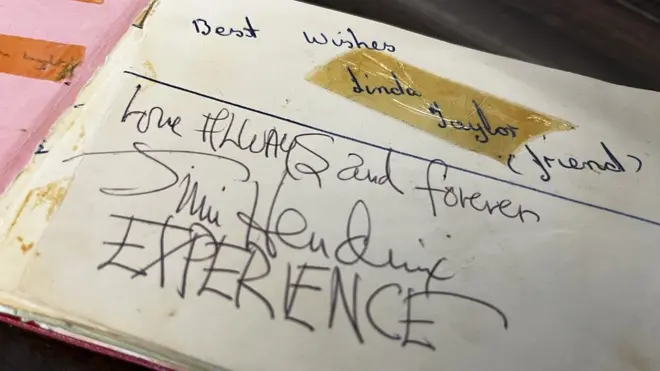 Best wishes
Linda
Taylor
(friend)
Love ALWAYS and forever
Jimi Hendrix
EXPERIENCE